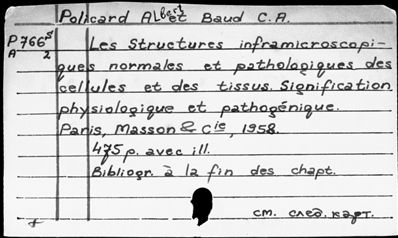 Policard Albert et Baud C.A.
P766s Les Structures inframicroscopi-
A 2
ques normales et pathologiques des
cellules et des tissus. Signification
physiologique et pathogénique.
Paris, Masson & Cie, 1958.
475 p. avec ill.
Bibliogr. à la fin des chapt.
см. след. карт.